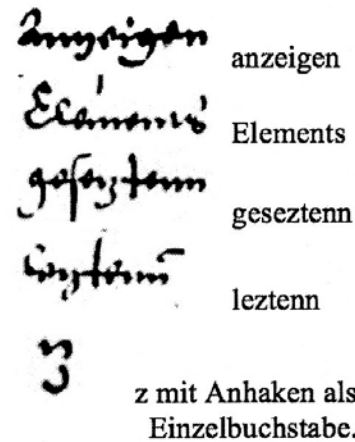 anzeigen anzeigen
Elements Elements
geseztenn geseztenn
leztenn leztenn
z
z mit Anhaken als
Einzelbuchstabe.